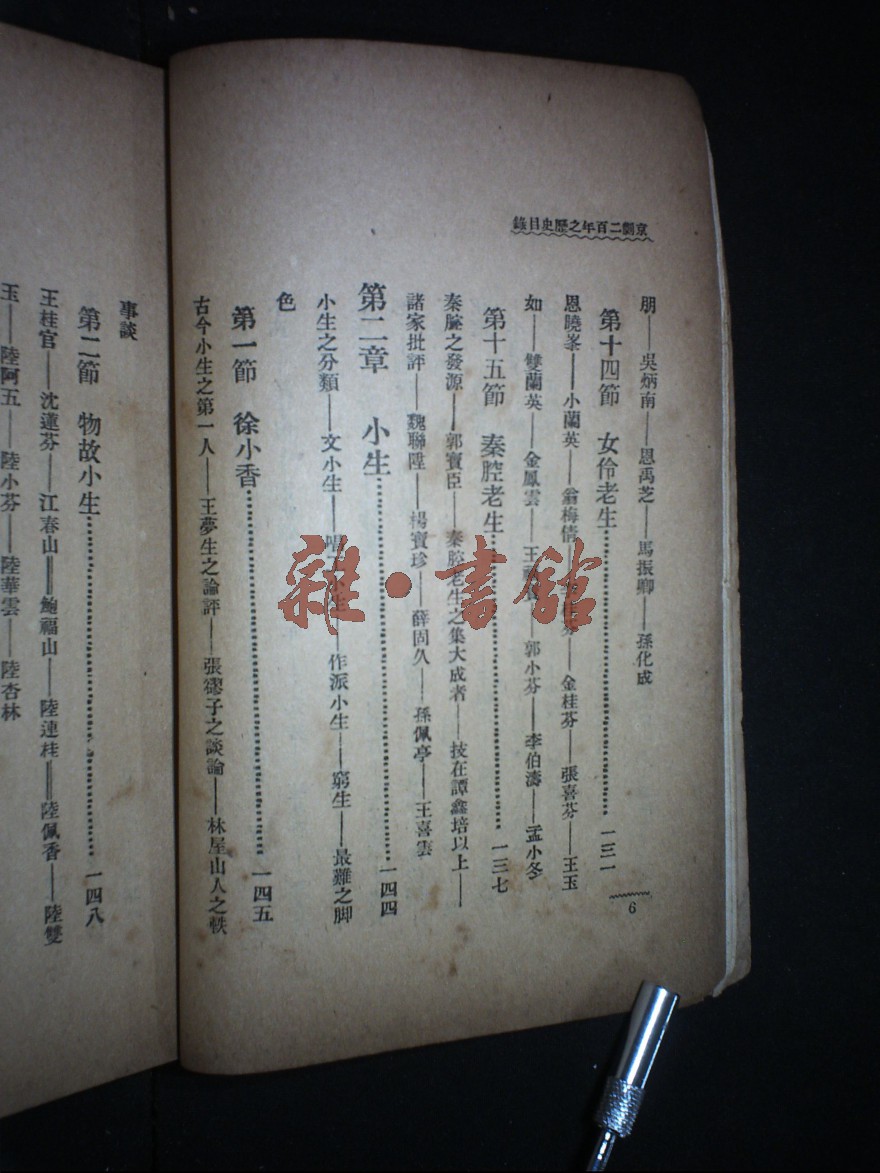 京劇二百年之歷史目錄
朋——吳炳南——恩禹芝——馬振卿——孫化成
第十四節 女伶老生………一三一
恩曉峯——小蘭英——翁梅倩——桂芬——金桂芬——張喜芬——王玉
如——雙蘭英——金鳳雲——王——郭小芬——李伯濤——孟小冬
第十五節 秦腔老生………一三七
秦腔之發源——郭寶臣——秦腔老生之集大成者——技在譚鑫培以上——
諸家批評——魏聯陞——楊寶珍——薛固久——孫佩亭——王喜雲
第二章 小生………一四四
小生之分類——文小生——小生——作派小生——窮生——最難之脚
色
第一節 徐小香………一四五
古今小生之第一人——王夢生之論評——張繆子之談論——林屋山人之軼
6
事談
第二節 物故小生………一四八
王桂官——沈蓮芬——江春山——鮑福山——陸連桂——陸佩香——陸雙
玉——陸阿五——陸小芬——陸華雲——陸杏林
雜·書館